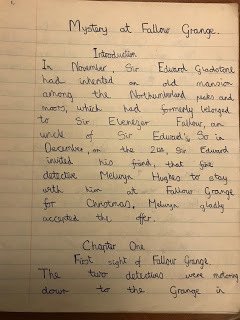 Mystery at Fallow Grange.
Introduction
In November, Sir Edward Gladstone
had inherited an old mansion
among the Northumberland peaks and
moors, which had formerly belonged
to Sir Ebenezer Fallow, an
uncle of Sir Edward's. So in
December, on the 21st, Sir Edward
invited his friend, that fine
detective Melwyn Hughes to stay
with him at Fallow Grange
for Christmas, Melwyn gladly
accepted the offer.
Chapter One
First sight of Fallow Grange.
The two detectives were motoring
down to the Grange in